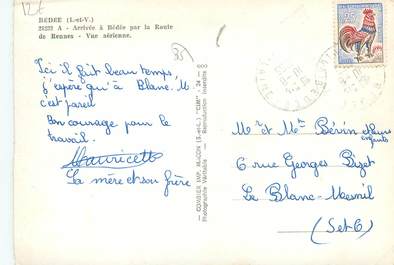 12€
BEDEE (I.-et-V.)
28292 A - Arrivée à Bédée par la Route
de Rennes - Vue aérienne.
Ici il fait beau temps,
j'espère qu'à Blanc. M.
c'est pareil
Bon courage pour le
travail.
Mauricette
Sa mère et son frère
— COMBIER IMP. MACON (S.-et-L.) "CIM"
Photographie Véritable - Reproduction interdite
Mr et Mme Bérin et leurs
enfants
6 rue Georges Bizet
Le Blanc-Mesnil
(S et O)